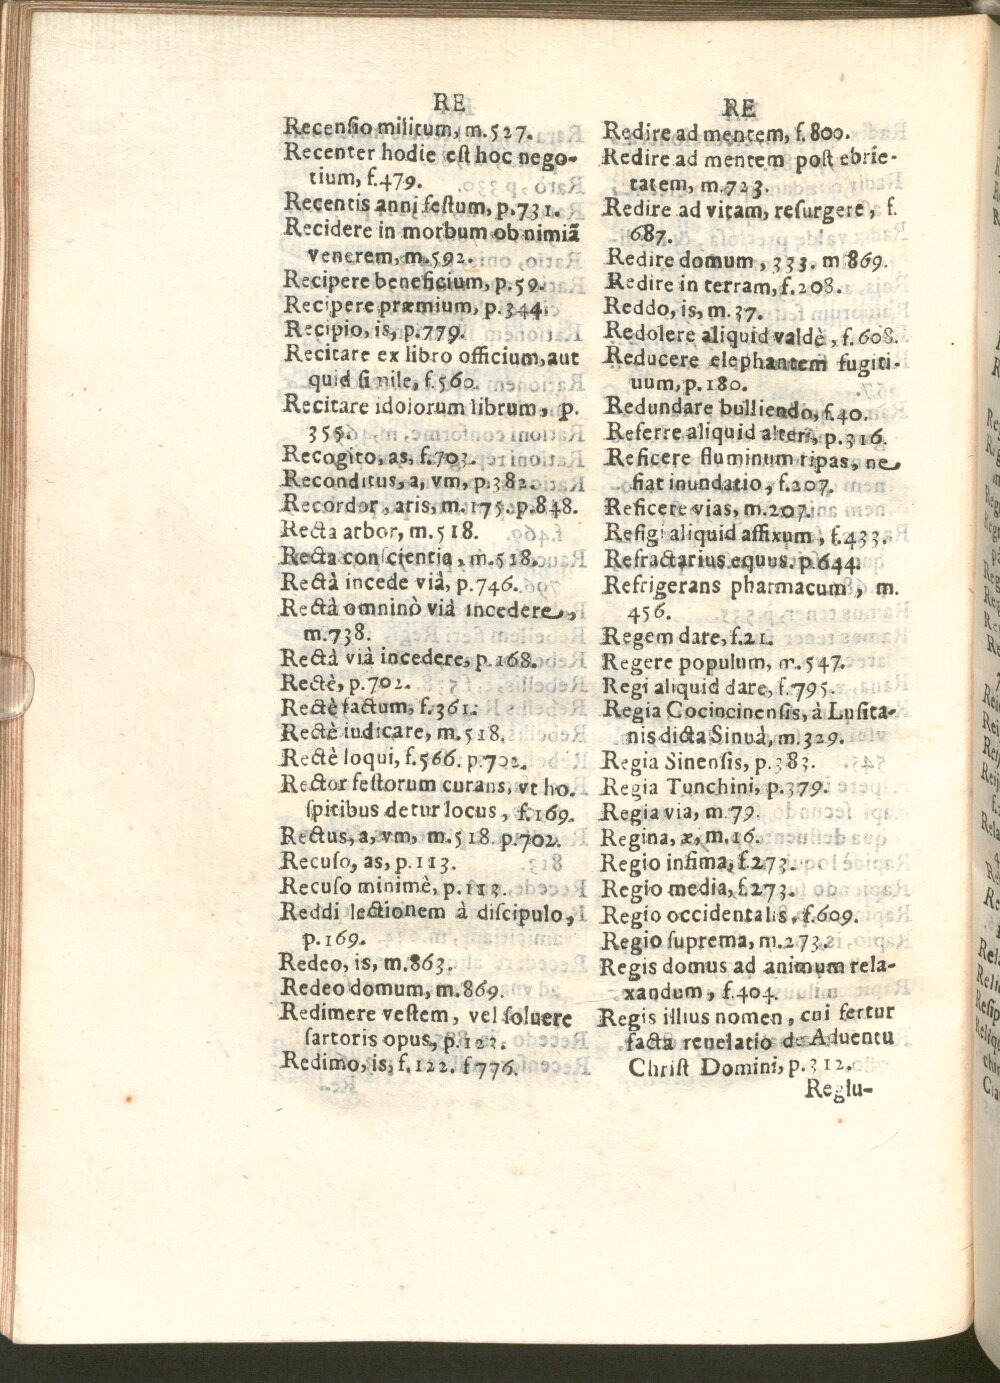 RE
Recensio militum, m.527.
Recenter hodie est hoc nego-
tium, f.479.
Recentis anni festum, p.731.
Recidere in morbum ob nimiã
venerem, m.592.
Recipere beneficium, p.59.
Recipere præmium, p.344.
Recipio, is, p.779.
Recitare ex libro officium, aut
quid simile, f.560.
Recitare idolorum librum, p.
355.
Recogito, as, f.703.
Reconditus, a, vm, p.382.
Recordor, aris, m.175. p.848.
Recta arbor, m.518.
Recta conscientia, m.518.
Rectà incede vià, p.746.
Rectà omninò vià incedere,
m.738.
Rectà vià incedere, p.168.
Rectè, p.702.
Rectè factum, f.361.
Rectè iudicare, m.518.
Rectè loqui, f.566. p.702.
Rector festorum curans, vt ho-
spitibus detur locus, f.169.
Rectus, a, vm, m.518. p.702.
Recuso, as, p.113.
Recuso minimè, p.113.
Reddi lectionem à discipulo,
p.169.
Redeo, is, m.863.
Redeo domum, m.869.
Redimere vestem, vel soluere
sartoris opus, p.122.
Redimo, is, f.122. f 776.
RE
Redire ad mentem, f.800.
Redire ad mentem post ebrie-
tatem, m.723.
Redire ad vitam, resurgere, f.
687.
Redire domum, 333. m 869.
Redire in terram, f.208.
Reddo, is, m.37.
Redolere aliquid valdè, f.608.
Reducere elephantem fugiti-
uum, p.180.
Redundare bulliendo, f.40.
Referre aliquid alteri, p.316.
Reficere fluminum ripas, ne
fiat inundatio, f.207.
Reficere vias, m.207.
Refigi aliquid affixum, f.433.
Refractarius equus. p.644.
Refrigerans pharmacum, m.
456.
Regem dare, f.21.
Regere populum, m.547.
Regi aliquid dare, f.795.
Regia Cocincinensis, à Lusita-
nis dicta Sinuà, m.329.
Regia Sinensis, p.383.
Regia Tunchini, p.379.
Regia via, m.79.
Regina, æ, m.16.
Regio infima, f.273.
Regio media, f.273.
Regio occidentalis, f.609.
Regio suprema, m.273.
Regis domus ad animum rela-
xandum, f.404.
Regis illius nomen, cui fertur
facta reuelatio de Aduentu
Christ Domini, p.312.
Reglu-